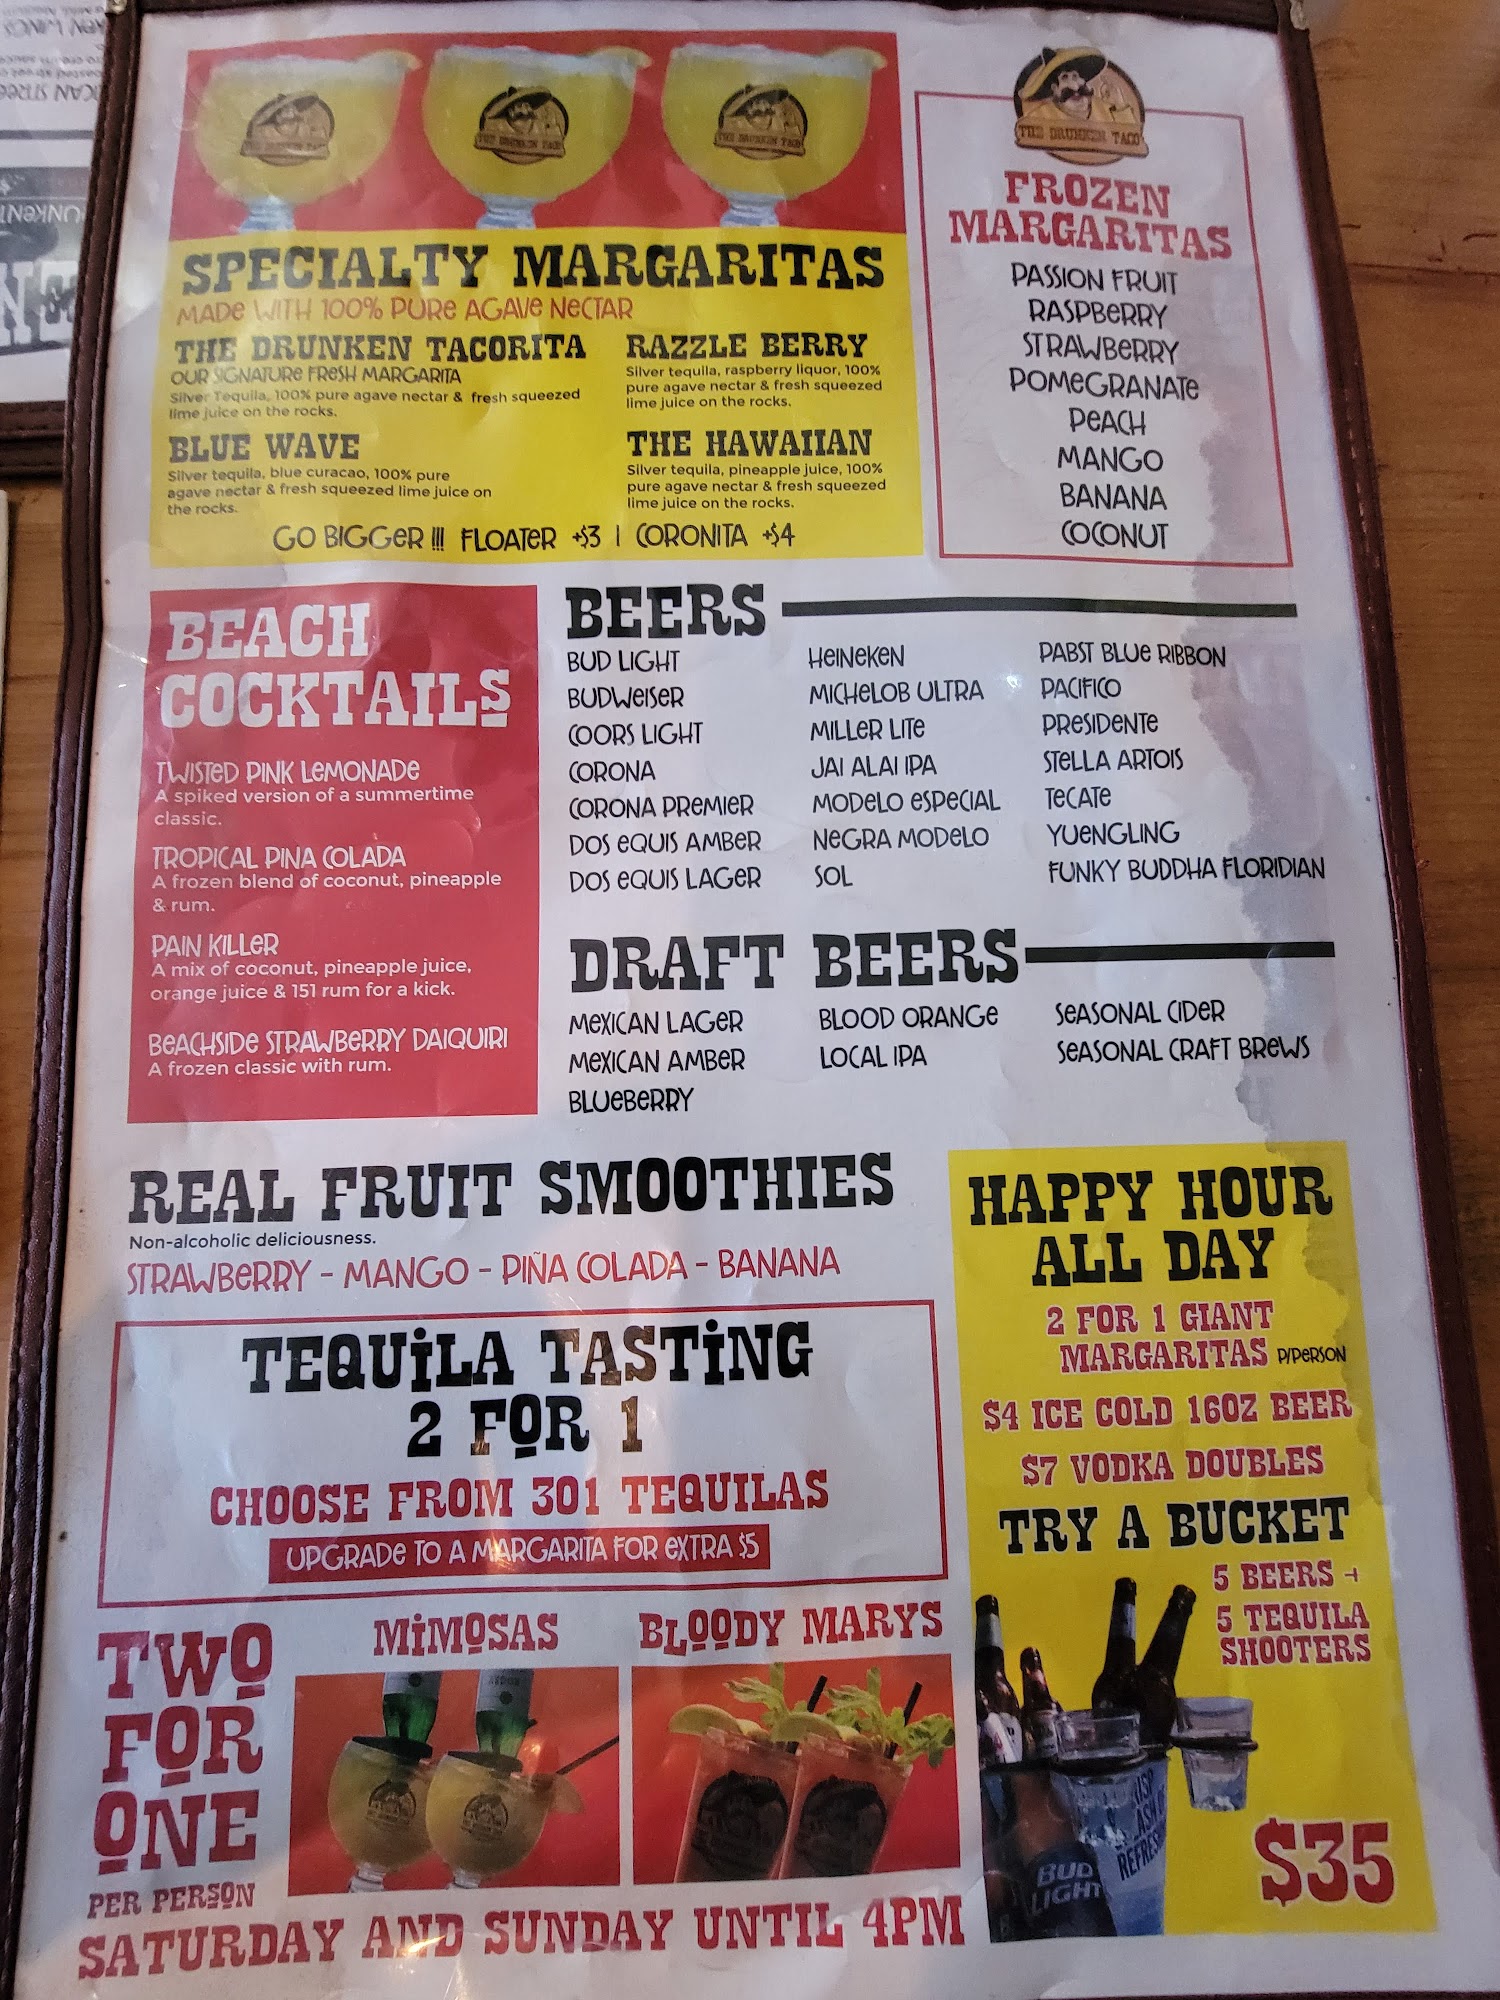 THE DRUNKEN TACO
THE DRUNKEN TACO
THE DRUNKEN TACO
SPECIALTY MARGARITAS
MADE WITH 100% PURE AGAVE NECTAR
THE DRUNKEN TACORITA
OUR SIGNATURE FRESH MARGARITA
Silver Tequila, 100% pure agave nectar & fresh squeezed
lime juice on the rocks.
RAZZLE BERRY
Silver tequila, raspberry liquor, 100%
pure agave nectar & fresh squeezed
lime juice on the rocks.
BLUE WAVE
Silver tequila, blue curacao, 100% pure
agave nectar & fresh squeezed lime juice on
the rocks.
THE HAWAIIAN
Silver tequila, pineapple juice, 100%
pure agave nectar & fresh squeezed
lime juice on the rocks.
GO BIGGER !!! FLOATER +$3 | CORONITA +$4
THE DRUNKEN TACO
FROZEN
MARGARITAS
PASSION FRUIT
RASPBERRY
STRAWBERRY
POMEGRANATE
PEACH
MANGO
BANANA
COCONUT
BEACH
COCKTAILS
TWISTED PINK LEMONADE
A spiked version of a summertime
classic.
TROPICAL PINA COLADA
A frozen blend of coconut, pineapple
& rum.
PAIN KILLER
A mix of coconut, pineapple juice,
orange juice & 151 rum for a kick.
BEACHSIDE STRAWBERRY DAIQUIRI
A frozen classic with rum.
BEERS
BUD LIGHT
BUDWEISER
COORS LIGHT
CORONA
CORONA PREMIER
DOS EQUIS AMBER
DOS EQUIS LAGER
HEINEKEN
MICHELOB ULTRA
MILLER LITE
JAI ALAI IPA
MODELO ESPECIAL
NEGRA MODELO
SOL
PABST BLUE RIBBON
PACIFICO
PRESIDENTE
STELLA ARTOIS
TECATE
YUENGLING
FUNKY BUDDHA FLORIDIAN
DRAFT BEERS
MEXICAN LAGER
MEXICAN AMBER
BLUEBERRY
BLOOD ORANGE
LOCAL IPA
SEASONAL CIDER
SEASONAL CRAFT BREWS
REAL FRUIT SMOOTHIES
Non-alcoholic deliciousness.
STRAWBERRY - MANGO - PIÑA COLADA - BANANA
TEQUILA TASTING
2 FOR 1
CHOOSE FROM 301 TEQUILAS
UPGRADE TO A MARGARITA FOR EXTRA $5
TWO
FOR
ONE
PER PERSON
MIMOSAS
BLOODY MARYS
SATURDAY AND SUNDAY UNTIL 4PM
HAPPY HOUR
ALL DAY
2 FOR 1 GIANT
MARGARITAS P/PERSON
$4 ICE COLD 16OZ BEER
$7 VODKA DOUBLES
TRY A BUCKET
5 BEERS +
5 TEQUILA
SHOOTERS
BUD
LIGHT
$35